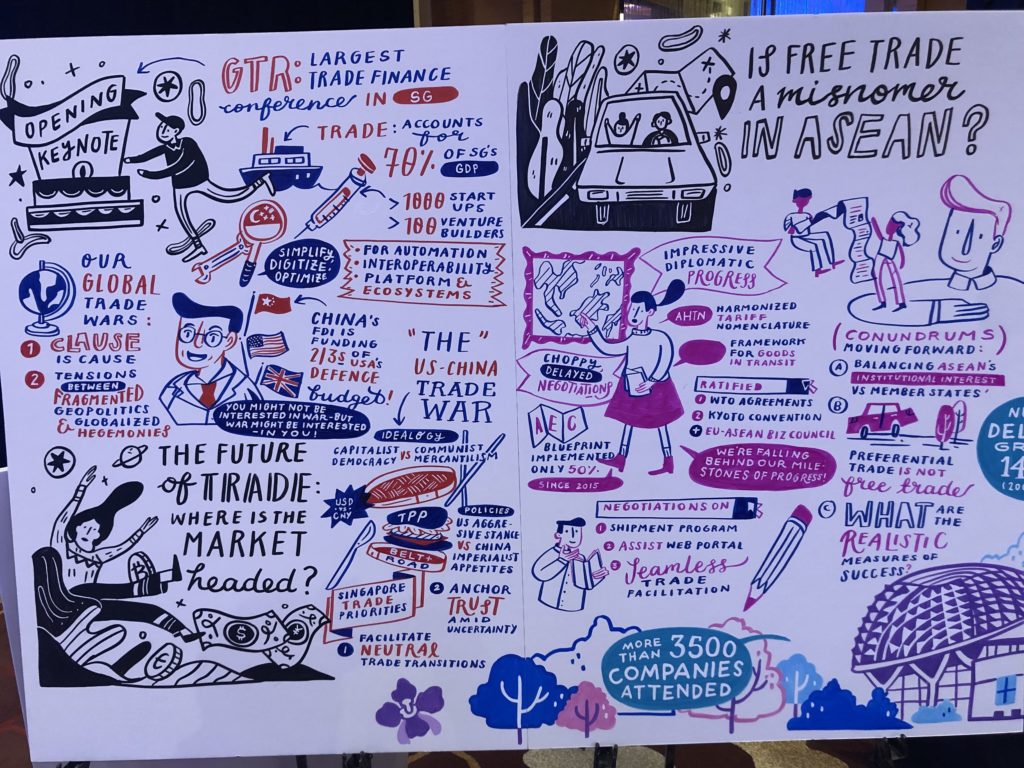 OPENING
KEYNOTE
GTR: LARGEST
TRADE FINANCE
conference IN SG
TRADE: ACCOUNTS
FOR
70% OF SG'S
GDP
> 1000 START
UPS
> 100 VENTURE
BUILDERS
SIMPLIFY
DIGITIZE,
OPTIMIZE
• FOR AUTOMATION
• INTEROPERABILITY
• PLATFORM &
ECOSYSTEMS
OUR
GLOBAL
TRADE
WARS:
1 CLAUSE
IS CAUSE
2 TENSIONS
BETWEEN
FRAGMENTED
GEOPOLITICS
GLOBALIZED
& HEGEMONIES
CHINA'S
FDI IS
FUNDING
2/3S OF
USA'S
DEFENCE
budget!
YOU MIGHT NOT BE
INTERESTED IN WAR-BUT
WAR MIGHT BE INTERESTED
-IN YOU!
"THE"
US-CHINA
TRADE
WAR
IDEALOGY
CAPITALIST VS COMMUNIST
DEMOCRACY MERCANTILIST
USD
-VS-
CNY
TPP
BELT+
ROAD
POLICIES
US AGGRE-
SIVE STANCE
VS CHINA
IMPERIALIST
APPETITES
THE FUTURE
of TRADE:
WHERE IS THE
MARKET
headed?
SINGAPORE
TRADE
PRIORITIES
1 FACILITATE
NEUTRAL
TRADE TRANSITIONS
2 ANCHOR
TRUST
AMID
UNCERTAINTY
IS FREE TRADE
A misnomer
IN ASEAN?
IMPRESSIVE
DIPLOMATIC
PROGRESS
AHTN HARMONIZED
TARIFF
NOMENCLATURE
FRAMEWORK
FOR GOODS
IN TRANSIT
CHOPPY
DELAYED
NEGOTIATIONS
RATIFIED
1 WTO AGREEMENTS
2 KYOTO CONVENTION
+ EU-ASEAN BIZ COUNCIL
AEC
BLUEPRINT
IMPLEMENTED
ONLY 50%
SINCE 2015
WE'RE FALLING
BEHIND OUR MILE-
STONES OF PROGRESS!
NEGOTIATIONS ON
1 SHIPMENT PROGRAM
2 ASSIST WEB PORTAL
3 Seamless
TRADE
FACILITATION
(CONUNDRUMS)
MOVING FORWARD:
A BALANCING ASEAN'S
INSTITUTIONAL INTEREST
VS MEMBER STATES'
B
PREFERENTIAL
TRADE IS NOT
free trade
C WHAT ARE THE
REALISTIC
MEASURES OF
SUCCESS?
MORE
THAN 3500
COMPANIES
ATTENDED